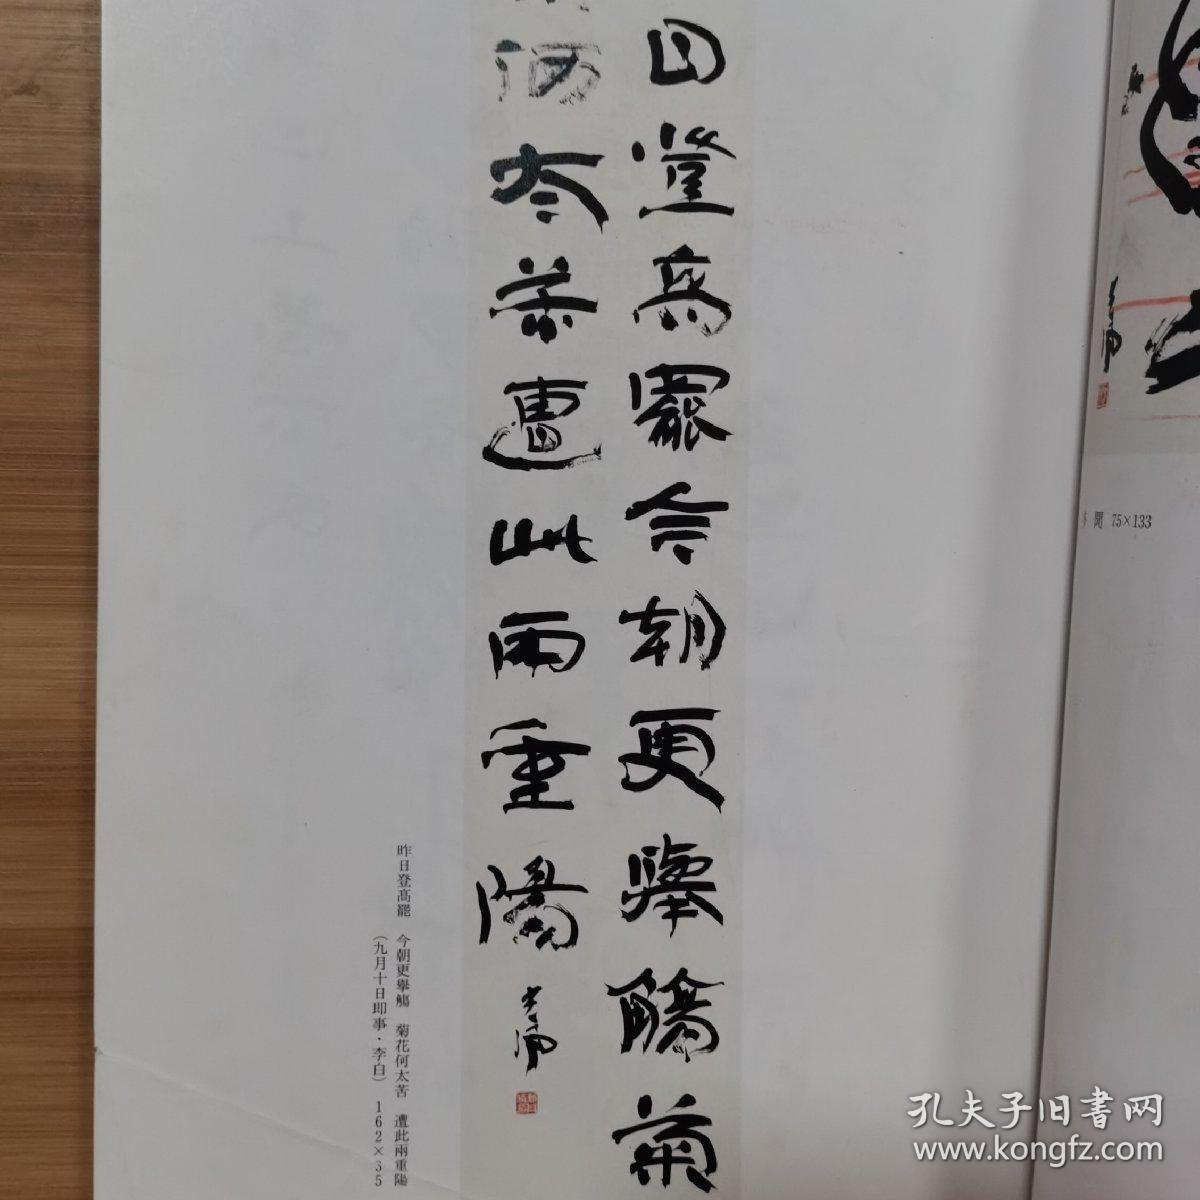 日登高罷今朝更擧觴菊
何太苦遭此兩重陽
昨日登高罷　今朝更擧觴　菊花何太苦　遭此兩重陽
（九月十日即事・李白）　162×35
聞 75×133
孔夫子旧書网
www.kongfz.com